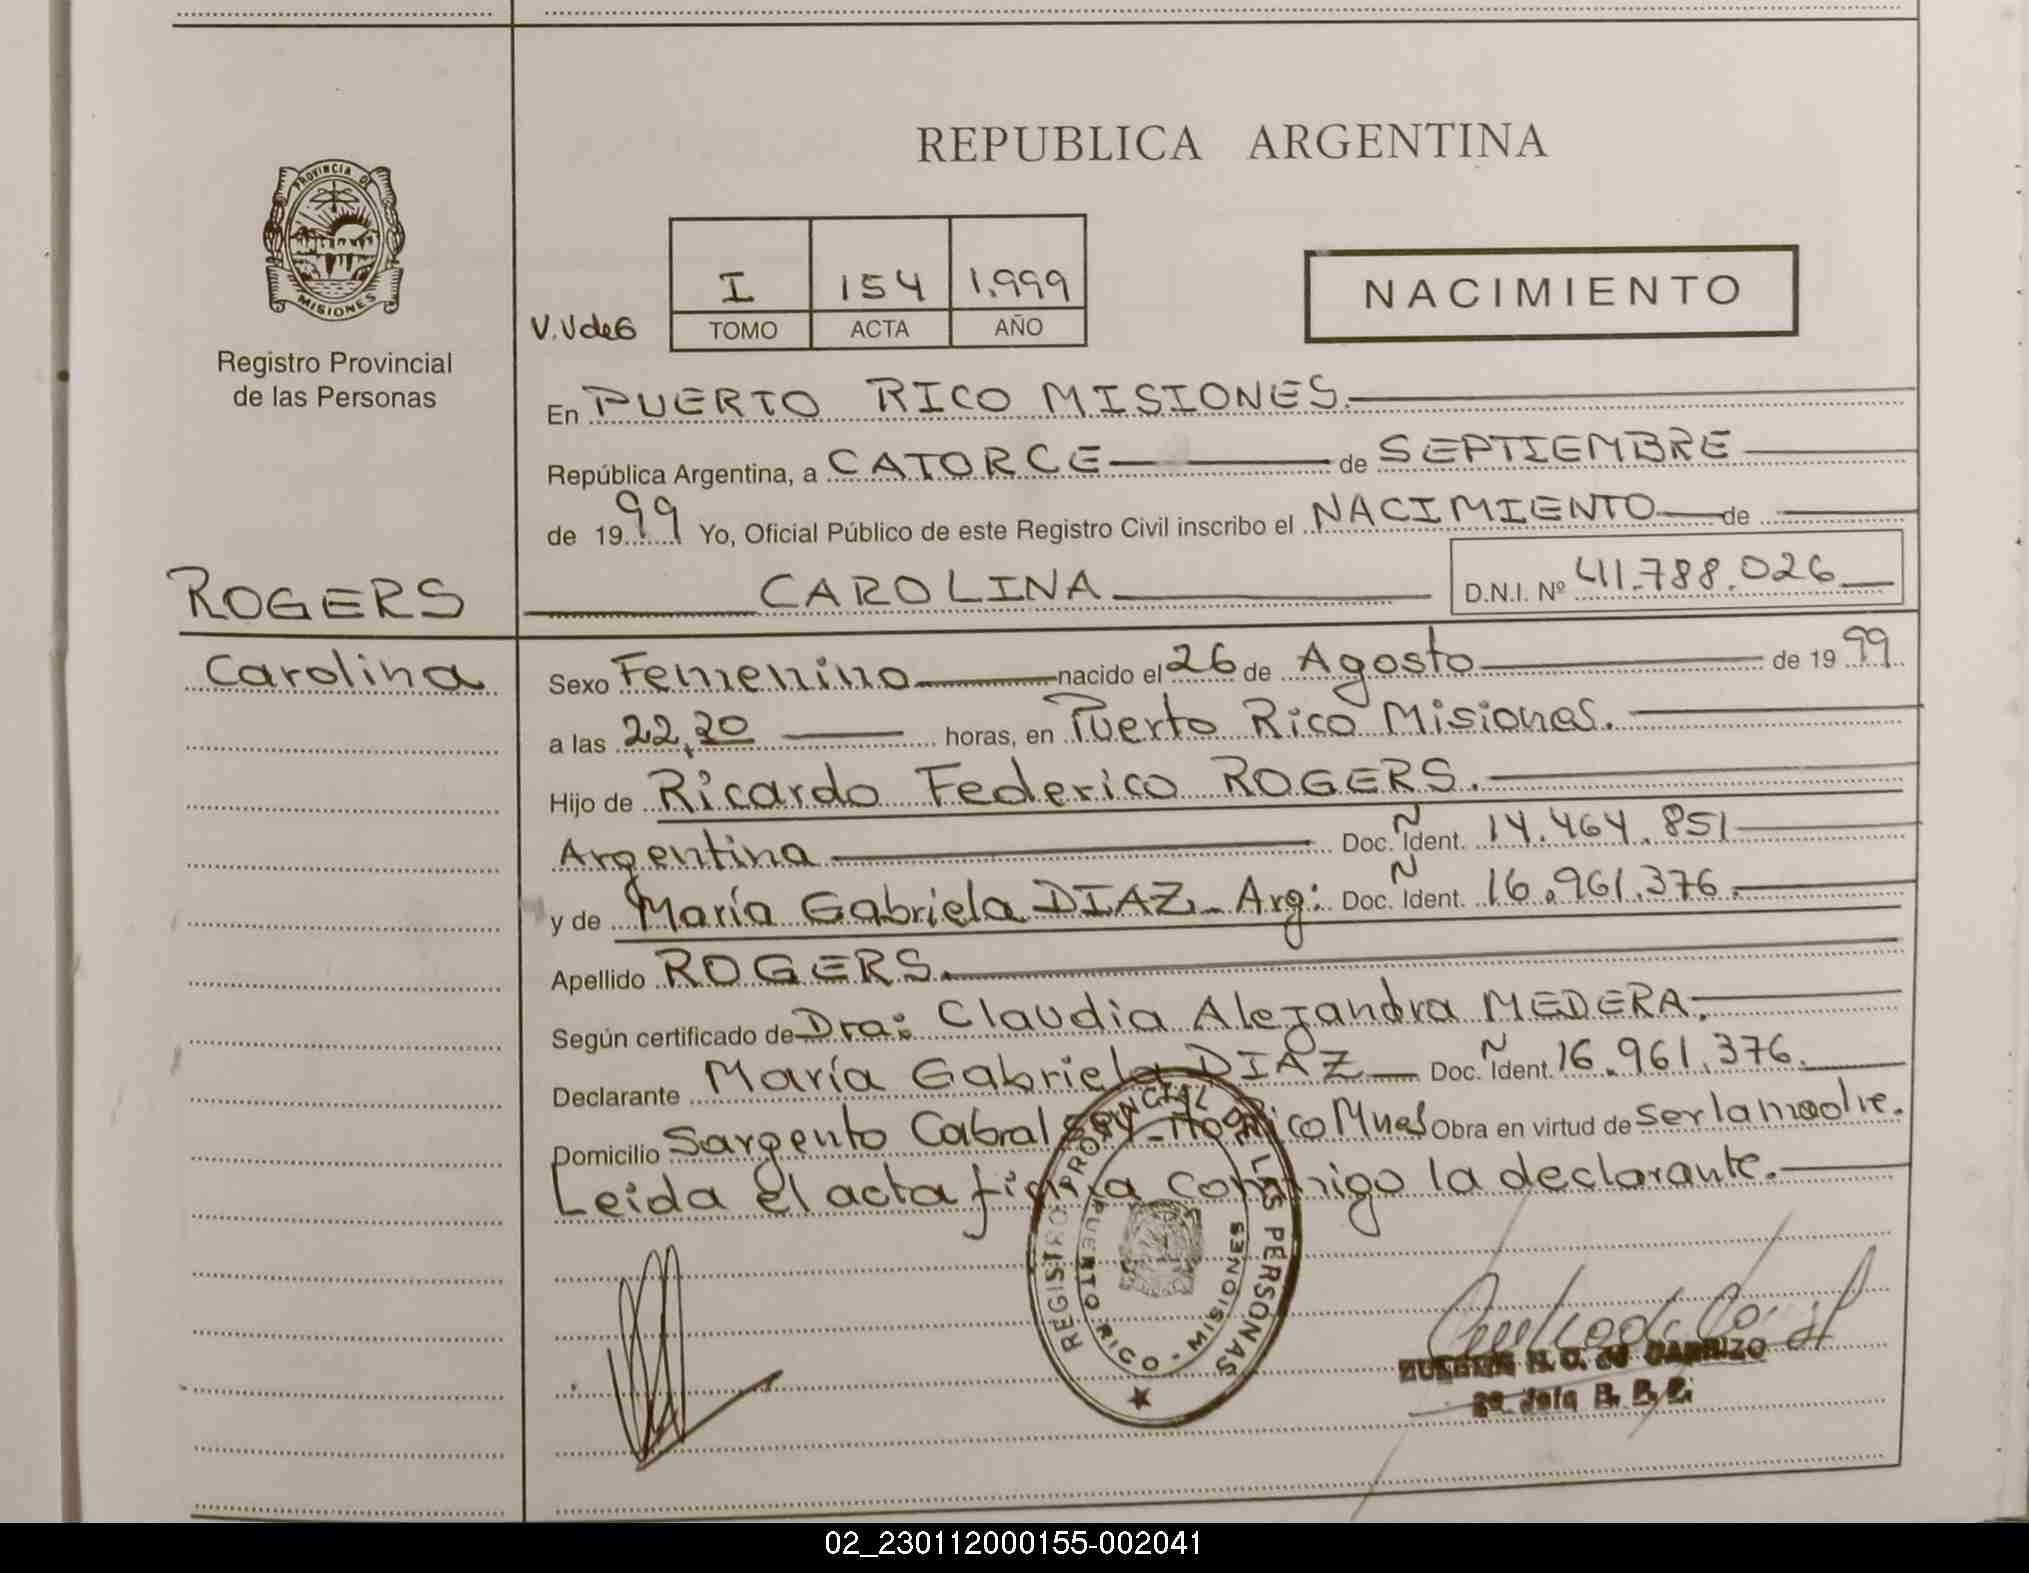 REPUBLICA ARGENTINA
PROVINCIA DE
MISIONES
Registro Provincial
de las Personas
I 154 1.999
V.V de G TOMO ACTA AÑO
NACIMIENTO
En PUERTO RICO MISIONES.
República Argentina, a CATORCE de SEPTIEMBRE
de 1999 Yo, Oficial Público de este Registro Civil inscribo el NACIMIENTO de
ROGERS CAROLINA D.N.I. Nº 41.788.026
Carolina Sexo Femenino nacido el 26 de Agosto de 1999
a las 22,20 horas, en Puerto Rico Misiones.
Hijo de Ricardo Federico ROGERS.
Argentina Doc. Ñ Ident. 14.464.851
y de María Gabriela DIAZ - Arg: Doc. Ñ Ident. 16.961.376.
Apellido ROGERS.
Según certificado de Dra: Claudia Alejandra MEDERA.
Declarante María Gabriela DIAZ Doc. Ñ Ident. 16.961.376.
Domicilio Sargento Cabral Rico Mnes Obra en virtud de ser la madre.
Leida el acta firma conmigo la declarante.
REGISTRO PROVINCIAL DE LAS PERSONAS
PUERTO RICO - MISIONES
N. C. de CARRIZO
02_230112000155-002041